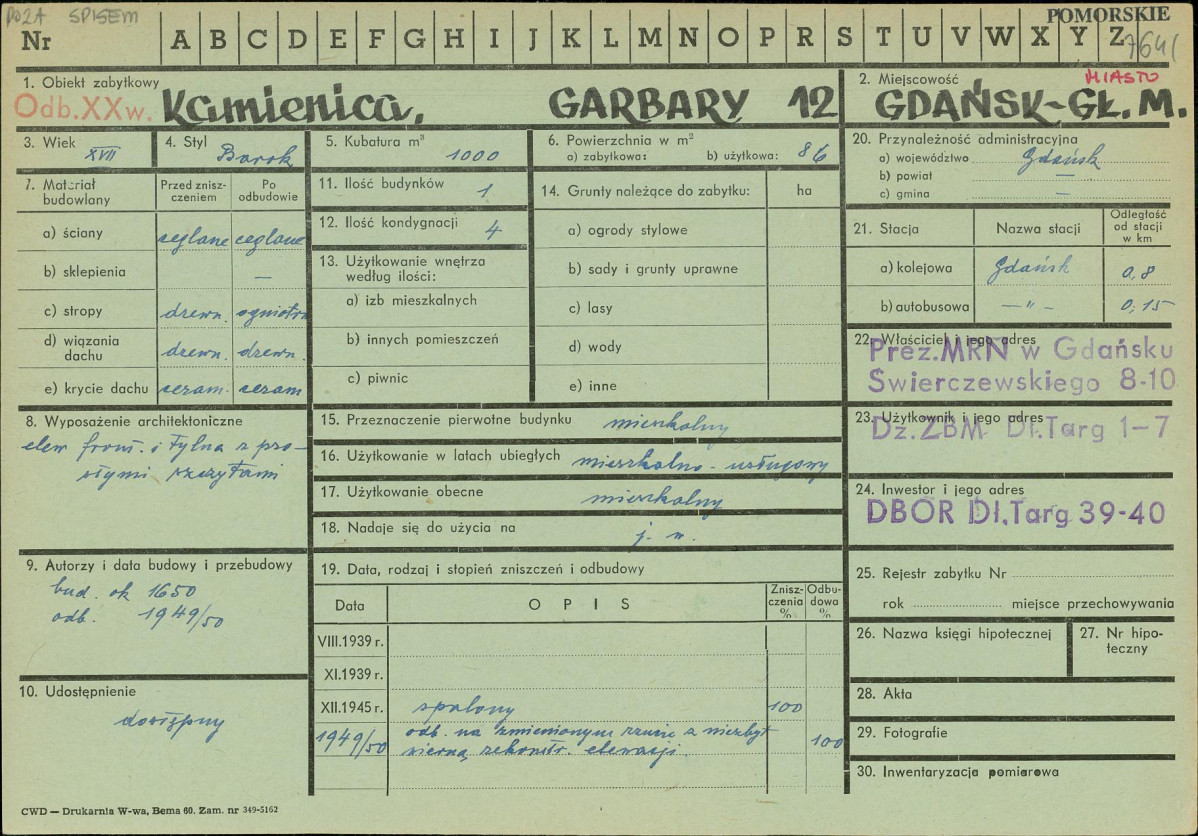 POZA SPISEM
POMORSKIE
Nr A B C D E F G H I J K L M N O P R S T U V W X Y Z
1. Obiekt zabytkowy
Odb. XX w. Kamienica, GARBARY 12
2. Miejscowość MIASTO
GDAŃSK-GŁ. M.
3. Wiek XVII
4. Styl Barok
5. Kubatura m³ 1000
6. Powierzchnia w m²
a) zabytkowa: b) użytkowa: 86
7. Materiał budowlany
Przed zniszczeniem
Po odbudowie
a) ściany ceglane ceglane
b) sklepienia —
c) stropy drewn. ogniotrw
d) wiązania dachu drewn. drewn.
e) krycie dachu ceram. ceram
8. Wyposażenie architektoniczne
elew. front. i tylna z pro-
stymi szczytami
9. Autorzy i data budowy i przebudowy
bud. ok 1650
odb. 1949/50
10. Udostępnienie
dostępny
11. Ilość budynków 1
12. Ilość kondygnacji 4
13. Użytkowanie wnętrza
według ilości:
a) izb mieszkalnych
b) innych pomieszczeń
c) piwnic
14. Grunty należące do zabytku: ha
a) ogrody stylowe
b) sady i grunty uprawne
c) lasy
d) wody
e) inne
15. Przeznaczenie pierwotne budynku mieszkalny
16. Użytkowanie w latach ubiegłych mieszkalno-usługowy
17. Użytkowanie obecne mieszkalny
18. Nadaje się do użycia na j. w.
19. Data, rodzaj i stopień zniszczeń i odbudowy
Data OPIS Zniszczenia % Odbudowa %
VIII.1939 r.
XI.1939 r.
XII.1945 r. spalony 100
1949/50 odb. na zmienionym rzucie z niezbyt
wierną rekonstr. elewacji. 100
20. Przynależność administracyjna
a) województwo Gdańsk
b) powiat —
c) gmina —
21. Stacja Nazwa stacji Odległość od stacji w km
a) kolejowa Gdańsk 0,8
b) autobusowa —"— 0,15
22. Właściciel i jego adres
Prez. MRN w Gdańsku
Swierczewskiego 8-10
23. Użytkownik i jego adres
Dz. ZBM Dł. Targ 1-7
24. Inwestor i jego adres
DBOR Dł. Targ 39-40
25. Rejestr zabytku Nr
rok miejsce przechowywania
26. Nazwa księgi hipotecznej
27. Nr hipoteczny
28. Akta
29. Fotografie
30. Inwentaryzacja pomiarowa
CWD — Drukarnia W-wa, Bema 60. Zam. nr 349-5162